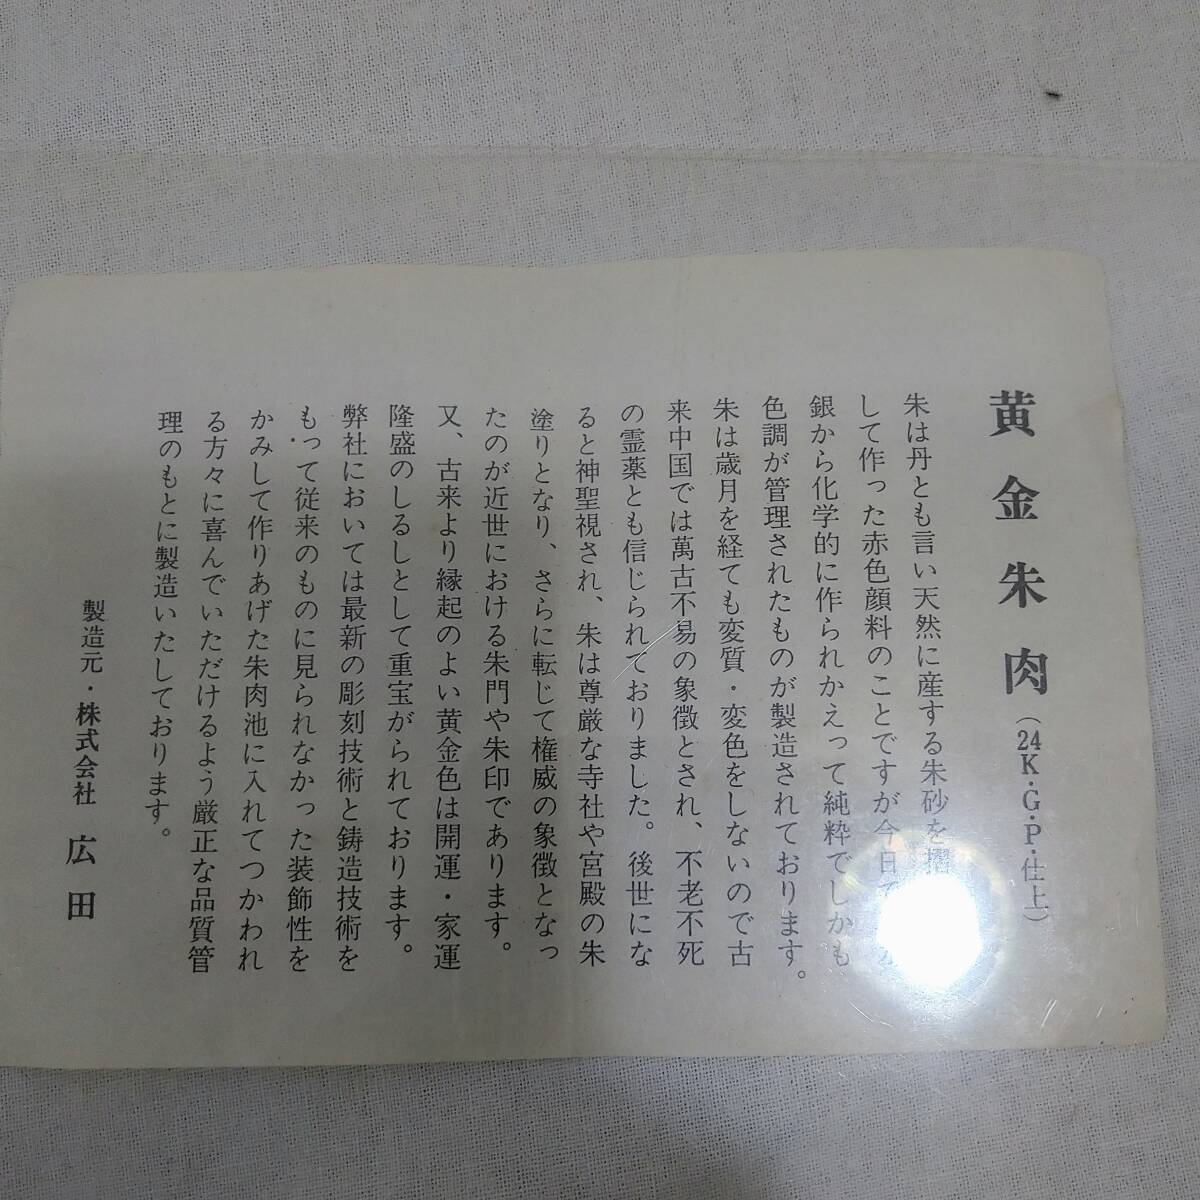 黄金朱肉(24K・G・P・仕上)
朱は丹とも言い天然に産する朱砂を
して作った赤色顔料のことですが今日で
銀から化学的に作られかえって純粋でしかも
色調が管理されたものが製造されております。
朱は歳月を経ても変質・変色をしないので古
来中国では萬古不易の象徴とされ、不老不死
の霊薬とも信じられておりました。後世にな
ると神聖視され、朱は尊厳な寺社や宮殿の朱
塗りとなり、さらに転じて権威の象徴となっ
たのが近世における朱門や朱印であります。
又、古来より縁起のよい黄金色は開運・家運
隆盛のしるしとして重宝がられております。
弊社においては最新の彫刻技術と鋳造技術を
もって従来のものに見られなかった装飾性を
かみして作りあげた朱肉池に入れてつかわれ
る方々に喜んでいただけるよう厳正な品質管
理のもとに製造いたしております。
製造元・株式会社 広田